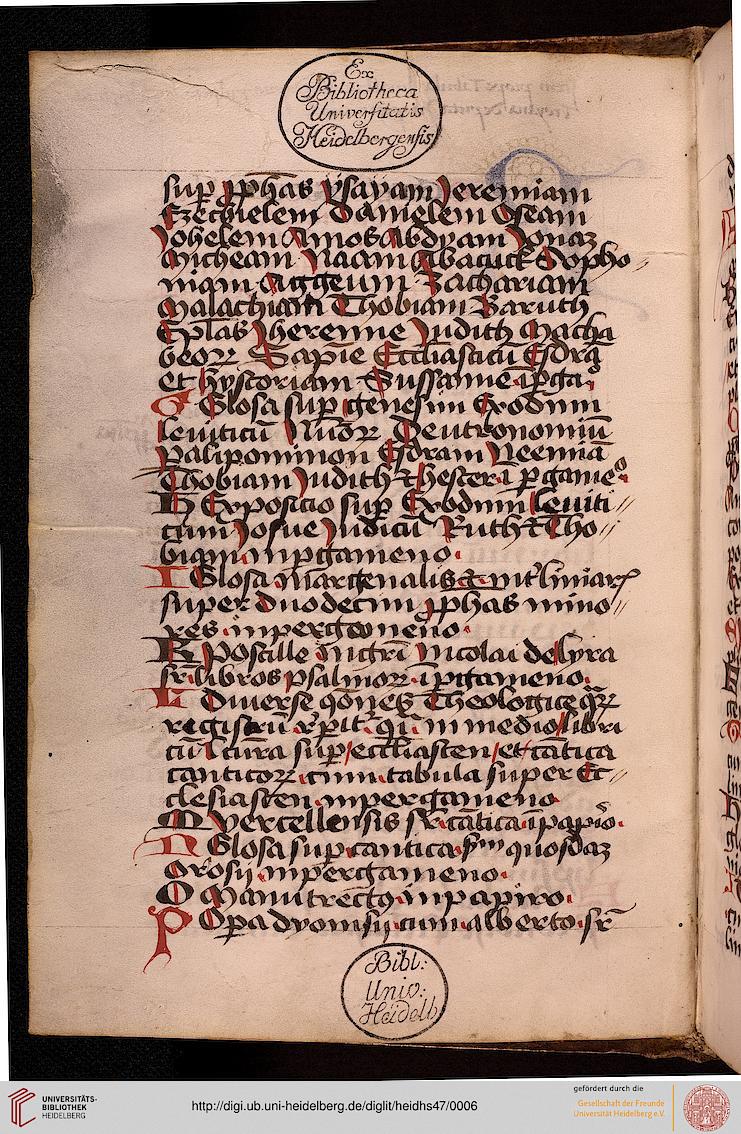 Ex
Bibliotheca
Universitatis
Heidelbergensis
sup pphas ysayam Jeremiam
Ezechielem Danielem Oseam
Johelem Amos Abdyam Jonaz
Micheam Naam Abacuck Sopho
niam Aggeum Zachariam
Malachiam Thobiam Baruch
Eplas Jheremie Judith Macha
beoꝝ Sapie Ecclīasticū Esdrā
et hystoriam Sussanne ī pga.
G Glosa sup genesim Exodum
leuiticū Nūoꝝ Deutronomiū
palipominon Esdram Neemiā
Thobiam Judith ⁊ hester ī pgameo
H Expositio sup Exodum leuiti
cum Josue Judicū Ruth ⁊ Tho
biam in pgameno.
I Glosa margenalis ⁊ int'liniar
super duodecim pphas mino
res in pergameno.
K Postille mgrī Nicolai de lyra
sr̄ libros psalmoꝝ ī pgameno.
L Diuerse qōnes Theologice qꝝ
regist in medio libri
cū lctura sup ecclīasten et cātica
canticoꝝ cum tabula super Ec
clesiasten in pergameno
M Vercellensis sr̄ cātica ī papiro.
N Glosa sup cantica sm quosdaz
in pergameno.
O Mamutrectꝯ in papiro.
P Opa dyonisij cum alberto sr̄
Bibl:
Univ:
Heidelb
UNIVERSITÄTS-
BIBLIOTHEK
HEIDELBERG
http://digi.ub.uni-heidelberg.de/diglit/heidhs47/0006
gefördert durch die
Gesellschaft der Freunde
Universität Heidelberg e.V.